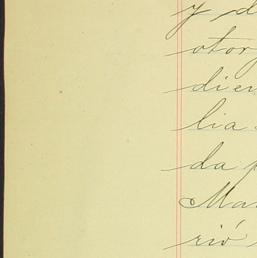 y d
otor
dien
lia
da p
Ma
rió